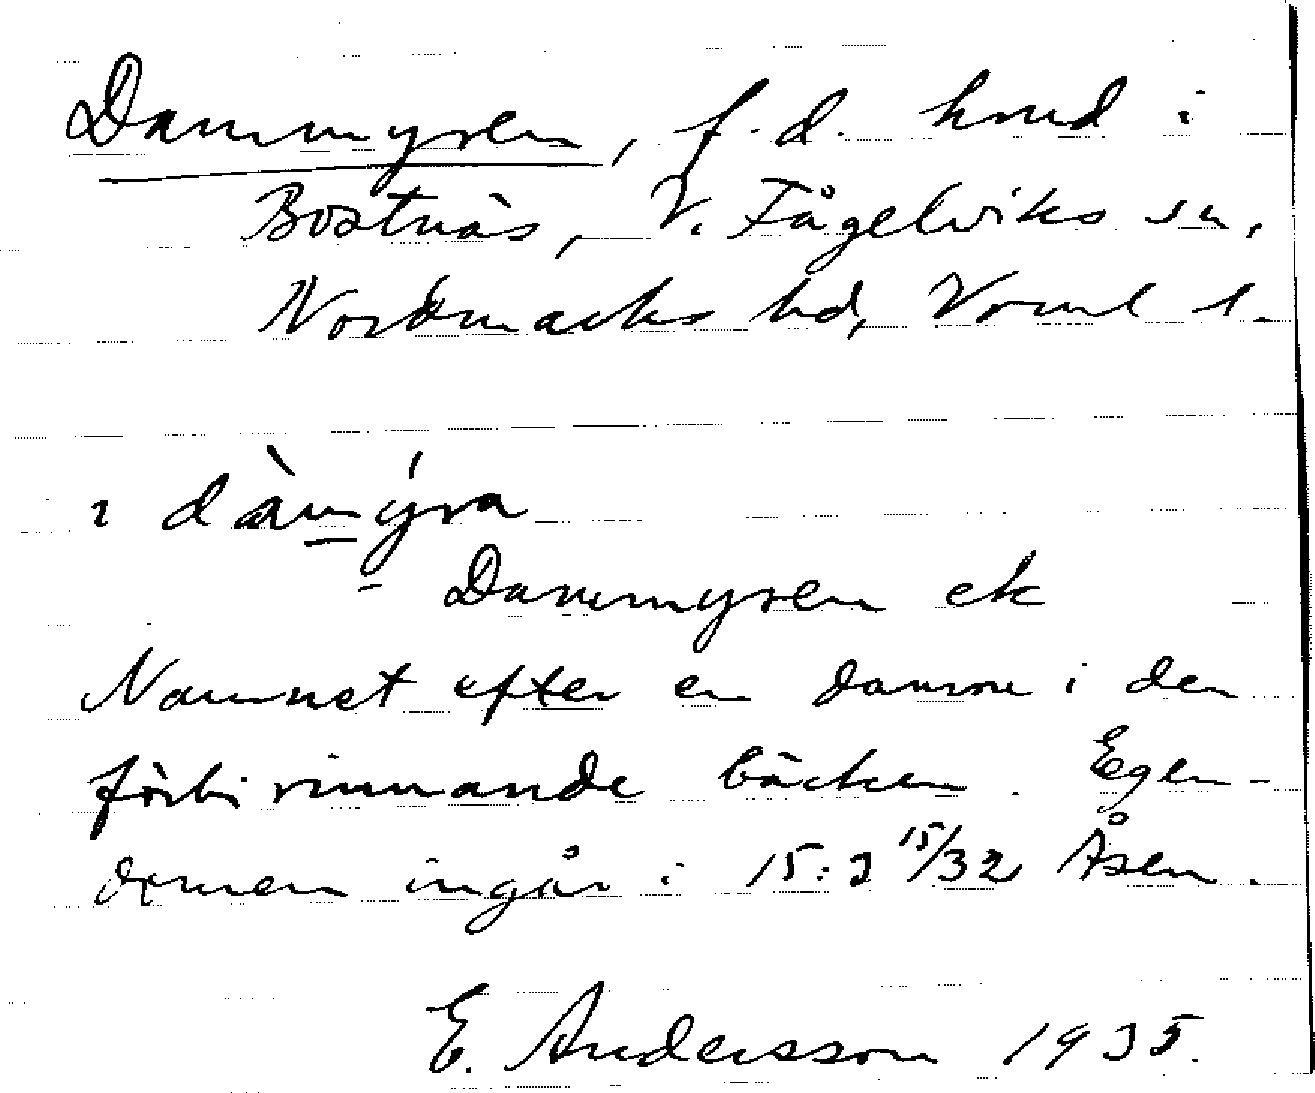 Dammyren, f.d. hmd i
Bostnäs, V. Fågelviks sn,
Nordmarks hd, Vrml l.
i dàmýra
- Dammyren ek
Namnet efter en damm i den
förbirinnande bäcken. Egen-
domen ingår i 15:3 15/32 Åsen.
E. Andersson 1935.